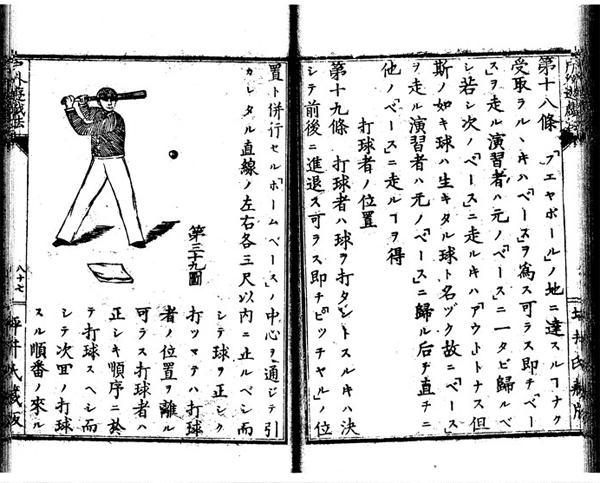 第十八條 「フエヤボール」ノ地ニ達スルヿナク
受取ラルヽキハ「ベース」ヲ寫ス可ラス即チ「ベー
ス」ヲ走ル演習者ハ元ノ「ベース」ニ一タビ歸ルベ
シ若シ次ノ「ベース」ニ走ルキハ「アウト」トナス但
斯ノ如キ球ハ生キタル球ト名ヅク故ニ「ベース」
ヲ走ル演習者ハ元ノ「ベース」ニ歸ル后チ直チニ
他ノ「ベース」ニ走ルヿヲ得
打球者ノ位置
第十九條 打球者ハ球ヲ打タントスルキハ決
シテ前後ニ進退ス可ラス即チ「ピッチヤル」ノ位
置ト併行セル「ホームベース」ノ中心ヲ通ジテ引
カレタル直線ノ左右各三尺以内ニ止ルベシ而
第三十九圖
シテ球ヲ正シク
打ツマテハ打球
者ノ位置ヲ離ル
可ラス打球者ハ
正シキ順序ニ於
テ打球スヘシ而
シテ次囘ノ打球
スル順番ノ來ル
戸外遊戯法
八十七
坪井氏藏版